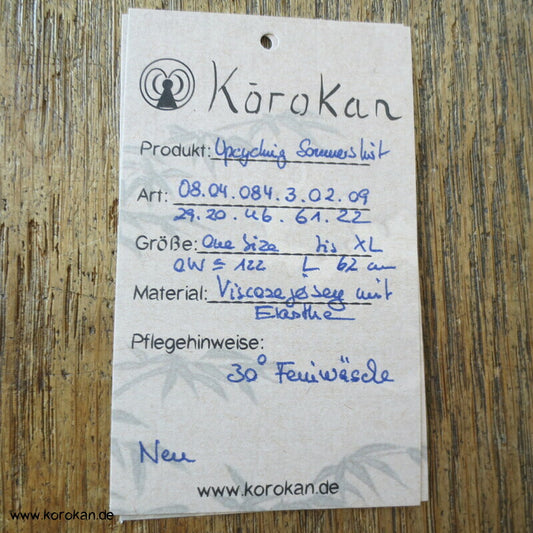 Kōrokan
Produkt: Upcycling Sommershirt
Art: 08.04.084.3.02.09
29.20.46.61.22
Größe: One Size bis XL
OW = 122 L 62 cm
Material: Viscosejersey mit
Elasthan
Pflegehinweise:
30° Feinwäsche
Neu
www.korokan.de
www.korokan.de